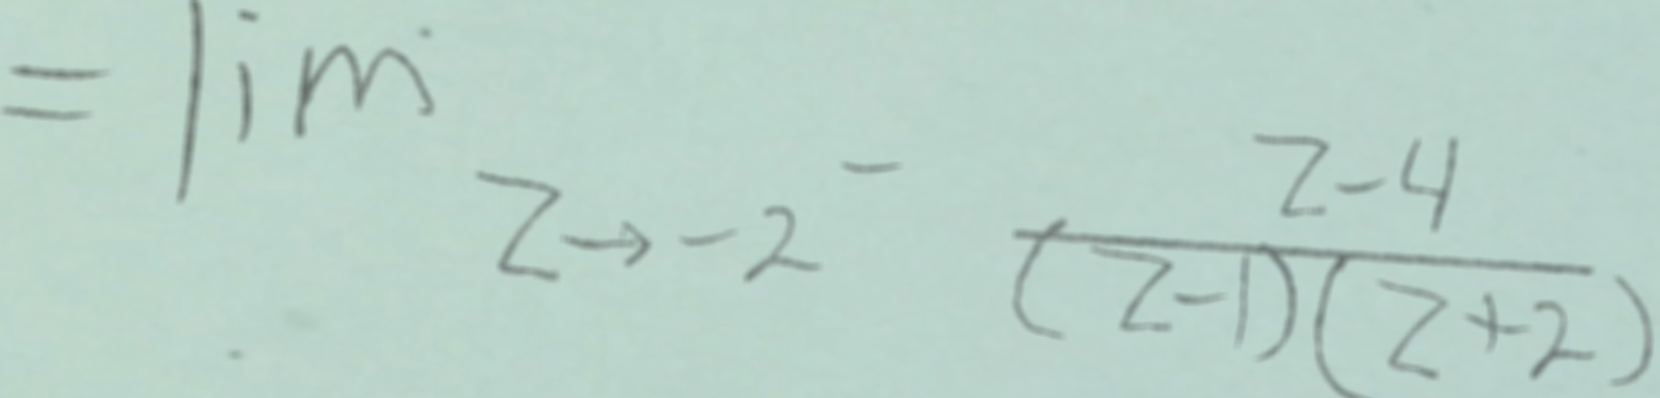 = lim z→-2⁻ (z-4)/((z-1)(z+2))